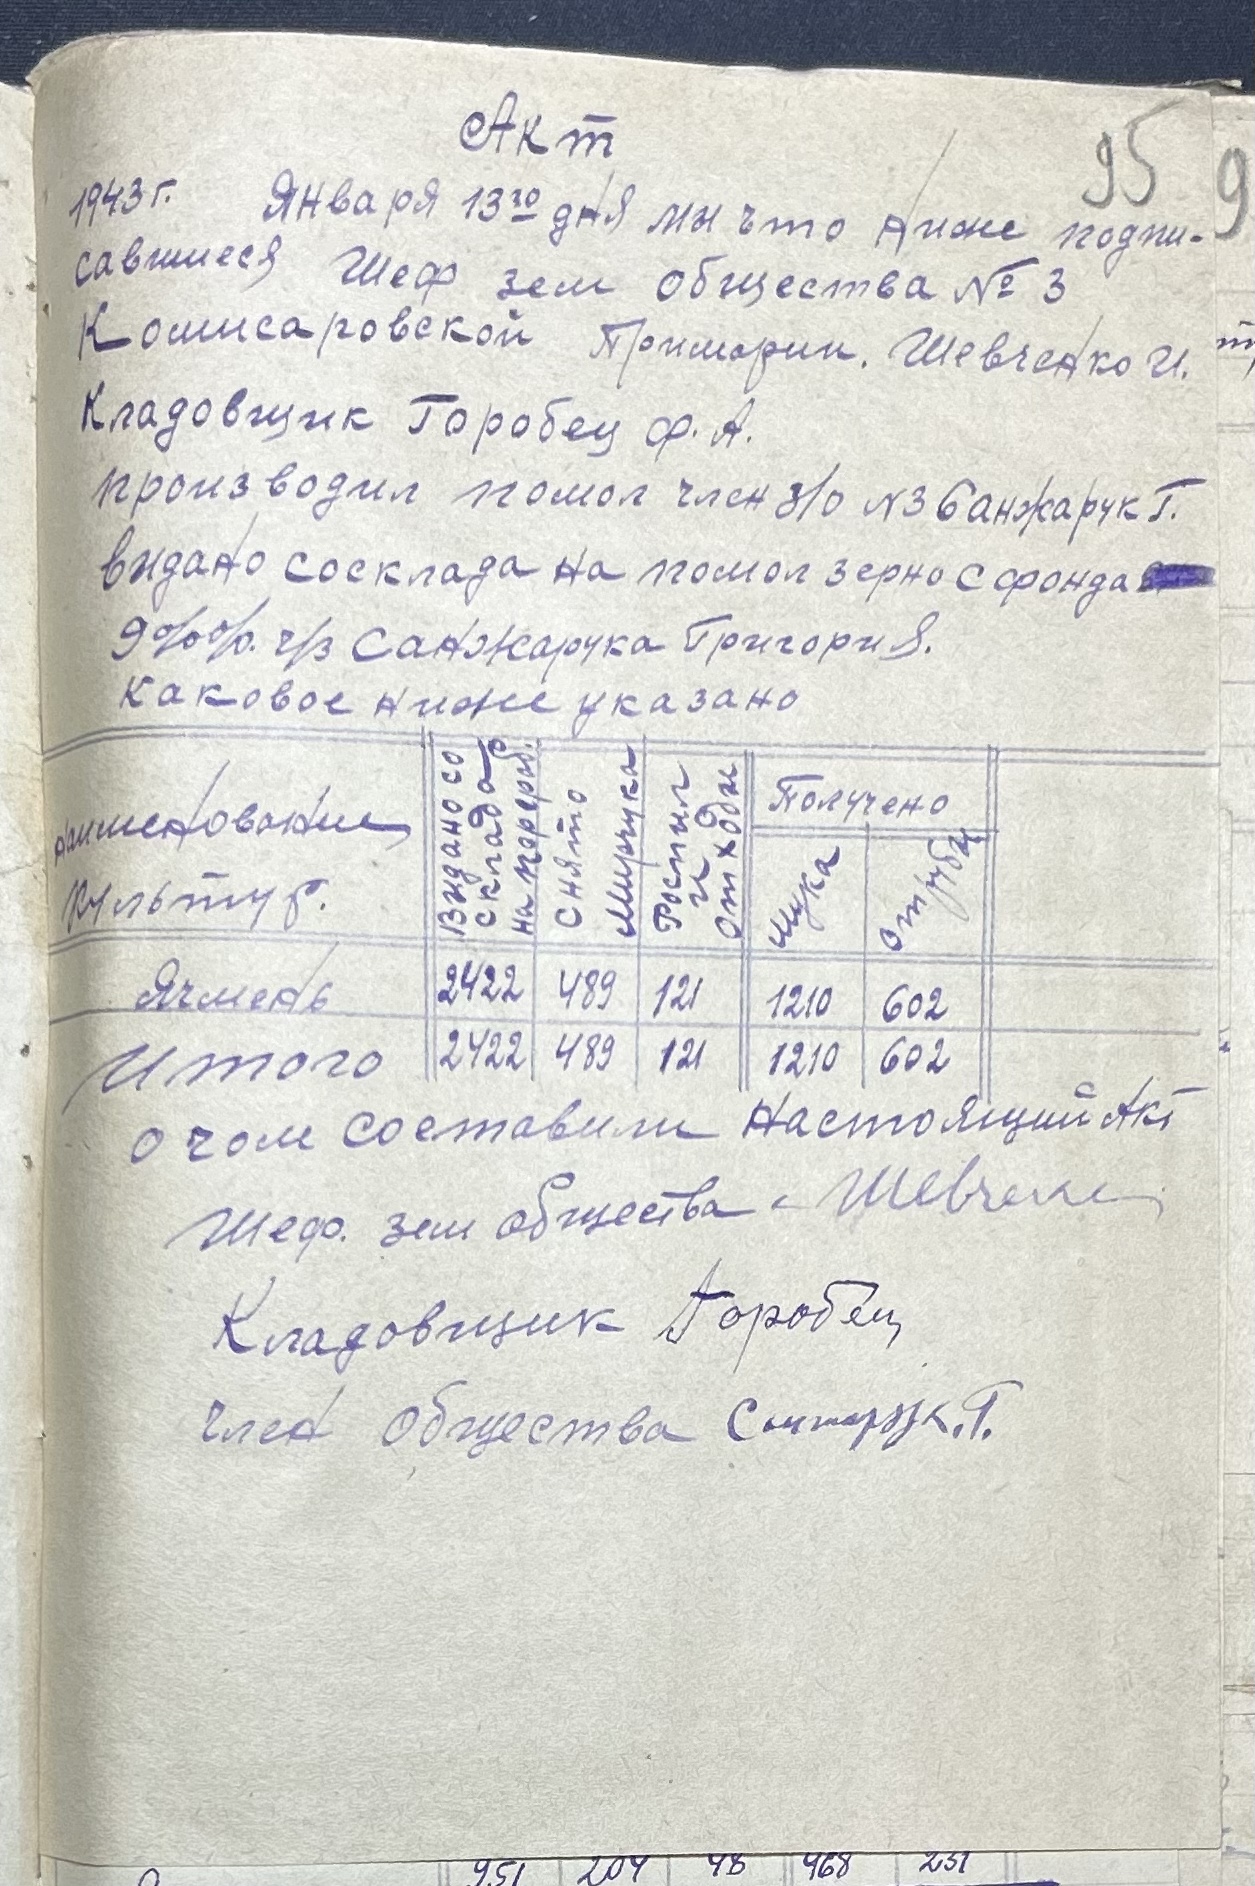 95
9
Акт
1943 г. Января 13го дня мы что ниже подпи-
савшиеся Шеф зем общества № 3
Комисаровской Примарии. Шевченко И.
Кладовщик Горобец Ф. А.
производил помол член з/о №3 Санжарук Г.
выдано сосклада на помол зерно с фонда
9%%. ч/з Санжарука Григория.
Каковое ниже указано
Наименование культур. Выдано со склада на перераб. Снято Мирчука Роспил и отходы Получено Мука Отруби
Ячмень 2422 489 121 1210 602
Итого 2422 489 121 1210 602
о чом составили настоящий Акт
Шеф. зем общества - Шевченко
Кладовщик Горобец
Член общества Санжарук. Г.
951 204 48 468 231